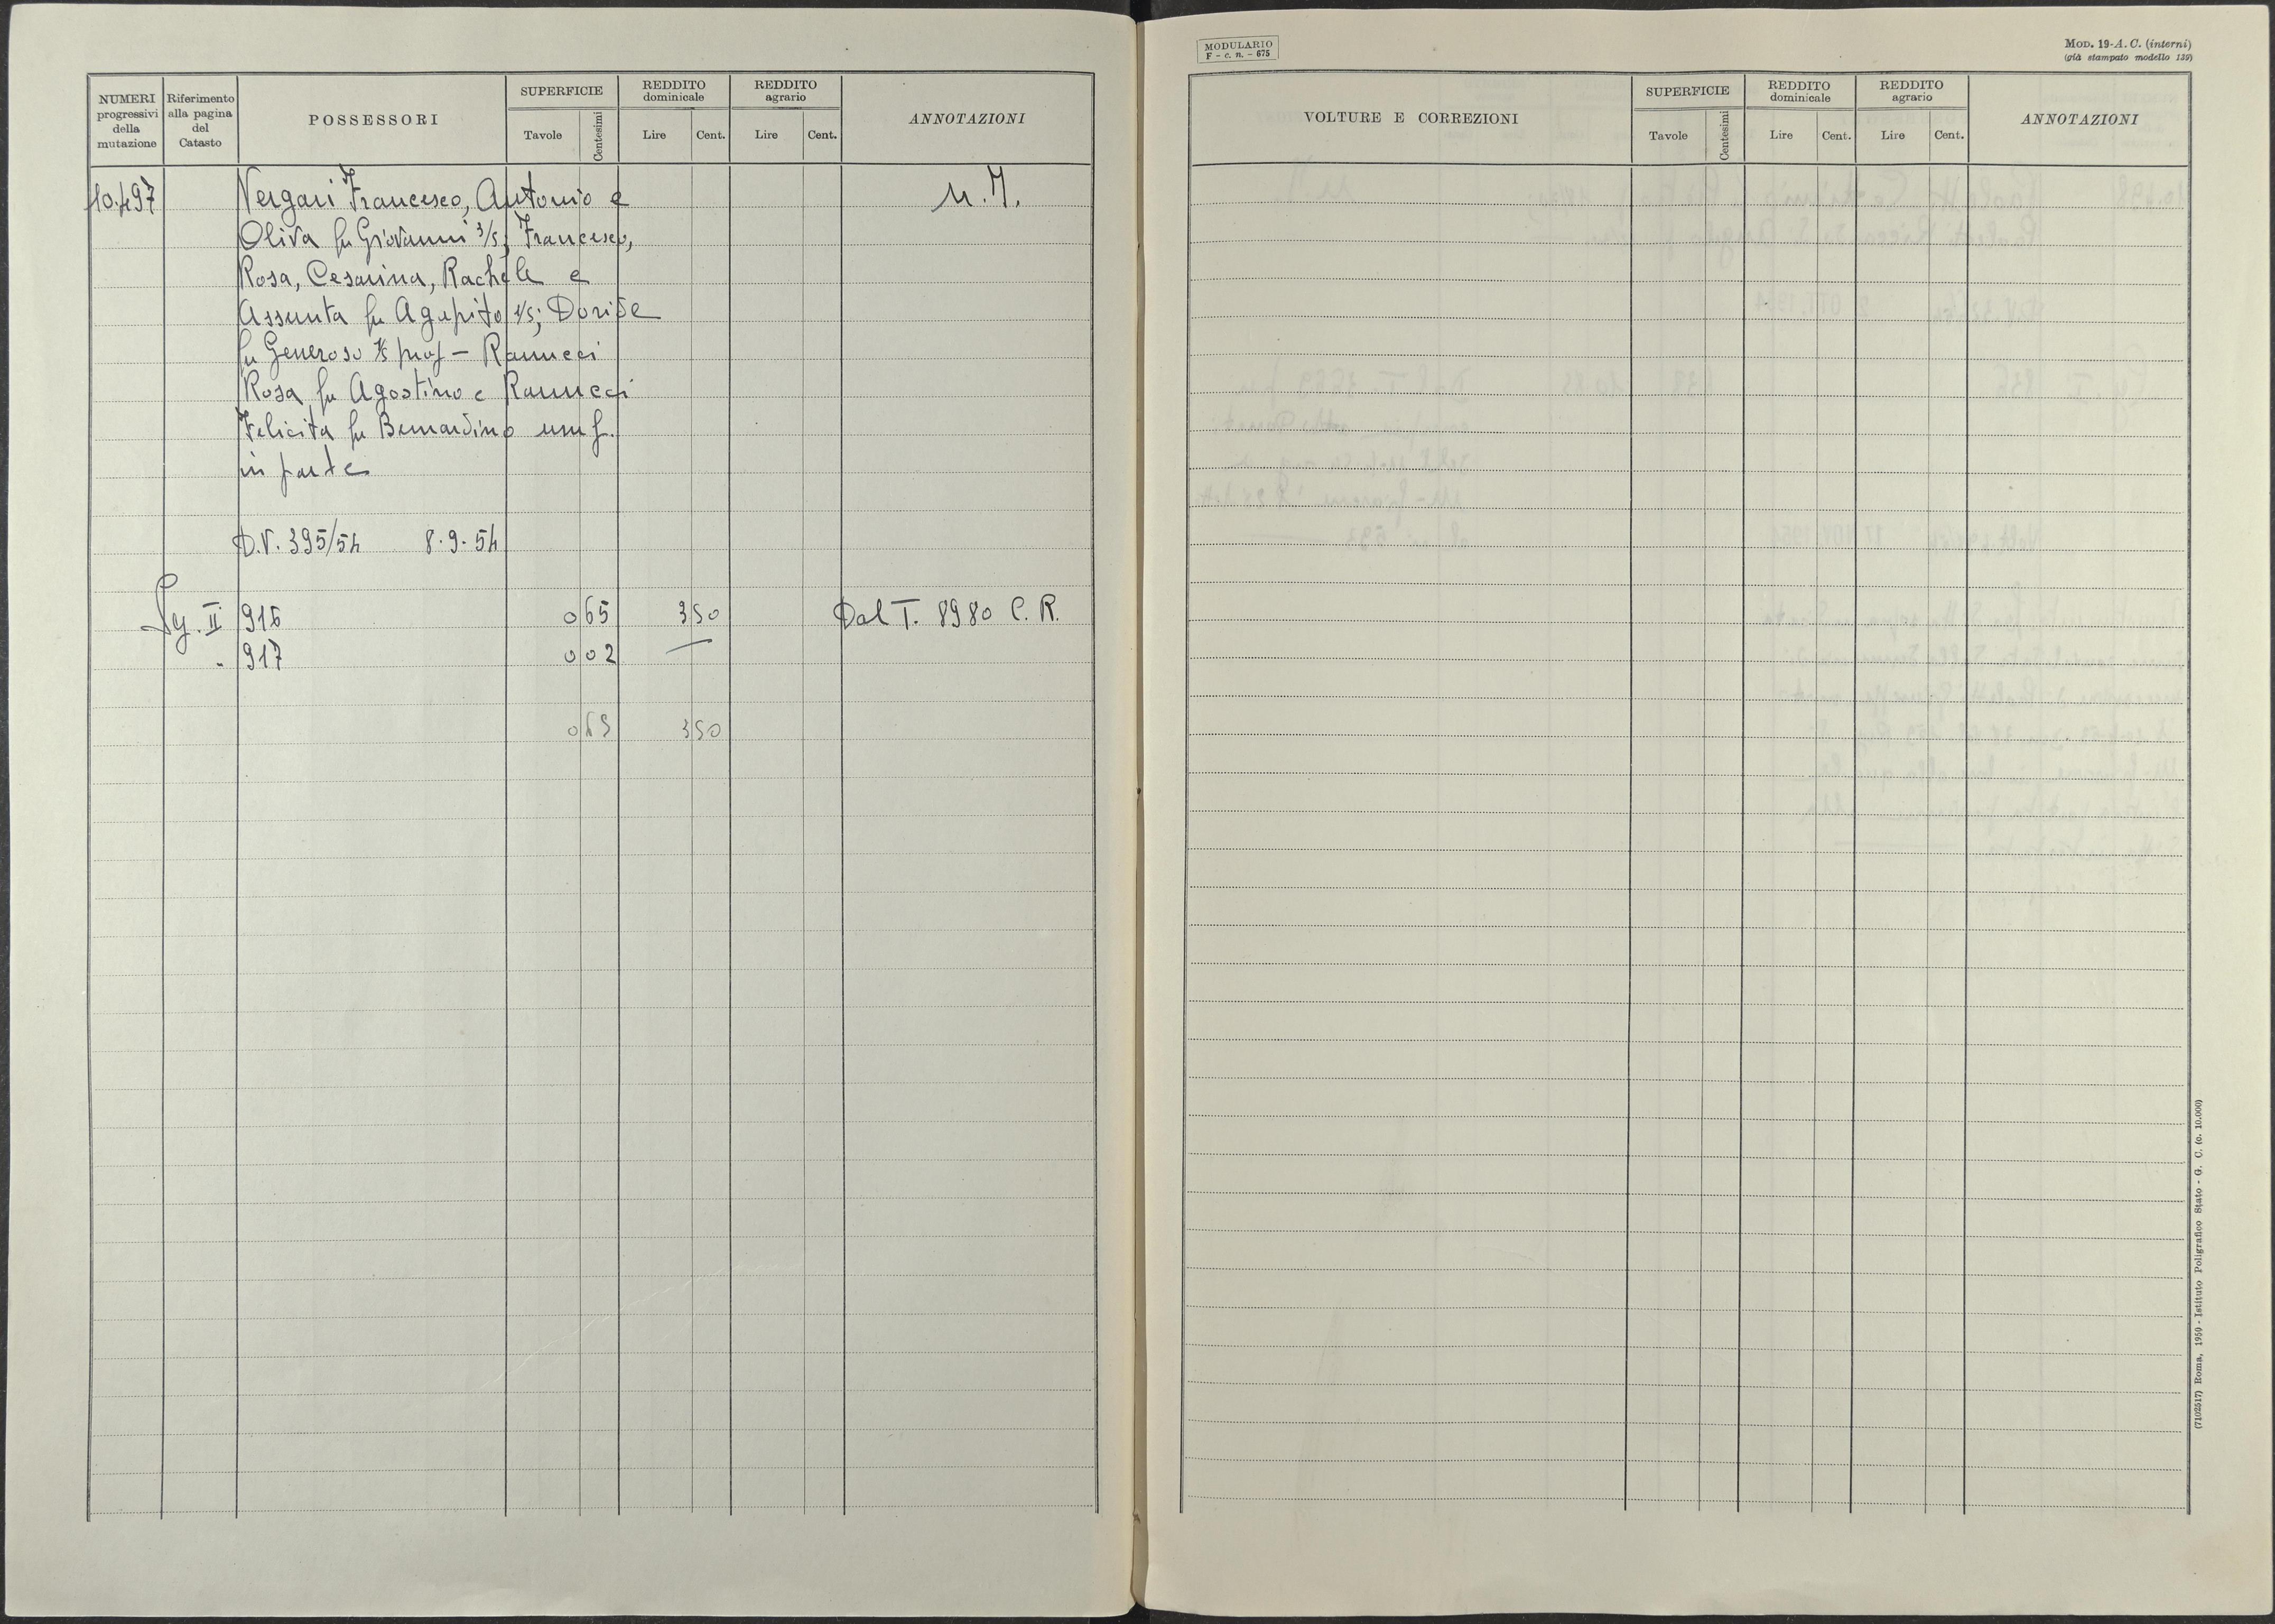 NUMERI progressivi della mutazione
Riferimento alla pagina del Catasto
POSSESSORI
SUPERFICIE
Tavole
Centesimi
REDDITO dominicale
Lire
Cent.
REDDITO agrario
Lire
Cent.
ANNOTAZIONI
10.497
Vergari Francesco, Antonio e
M.M.
Oliva fu Giovanni 3/5; Francesco,
Rosa, Cesarina, Rachele e
Assunta fu Agapito 1/5; Doride
fu Generoso 1/5 prop - Rannucci
Rosa fu Agostino e Rannucci
Felicita fu Bernardino usuf.
in parte
D.V. 395/54 8.9.54
Sg. II 916 0 65 3 50 Dal T. 8980 C.R.
" 917 0 02 —
0 3 50
MODULARIO
F - c. n. - 675
MOD. 19-A. C. (interni)
(già stampato modello 139)
VOLTURE E CORREZIONI
SUPERFICIE
Tavole
Centesimi
REDDITO dominicale
Lire
Cent.
REDDITO agrario
Lire
Cent.
ANNOTAZIONI
(7102517) Roma, 1950 - Istituto Poligrafico Stato - G. C. (c. 10.000)